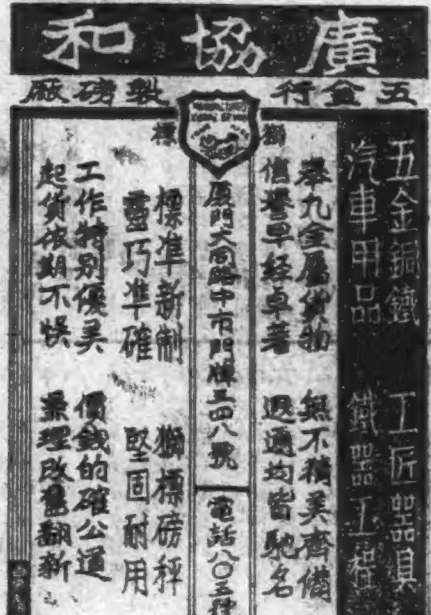 廣協和
五金行 製磅廠
獅標
五金銅鐵 工匠器具
汽車用品 鐵器工程
舉凡金屬貨物 無不精美齊備
信譽早經卓著 遐邇均皆馳名
厦門大同路中市門牌三四八號 電話八〇五號
標準新制 獅標磅秤
靈巧準確 堅固耐用
工作特别優美 價錢的確公道
起貨依期不悮 兼理改舊翻新